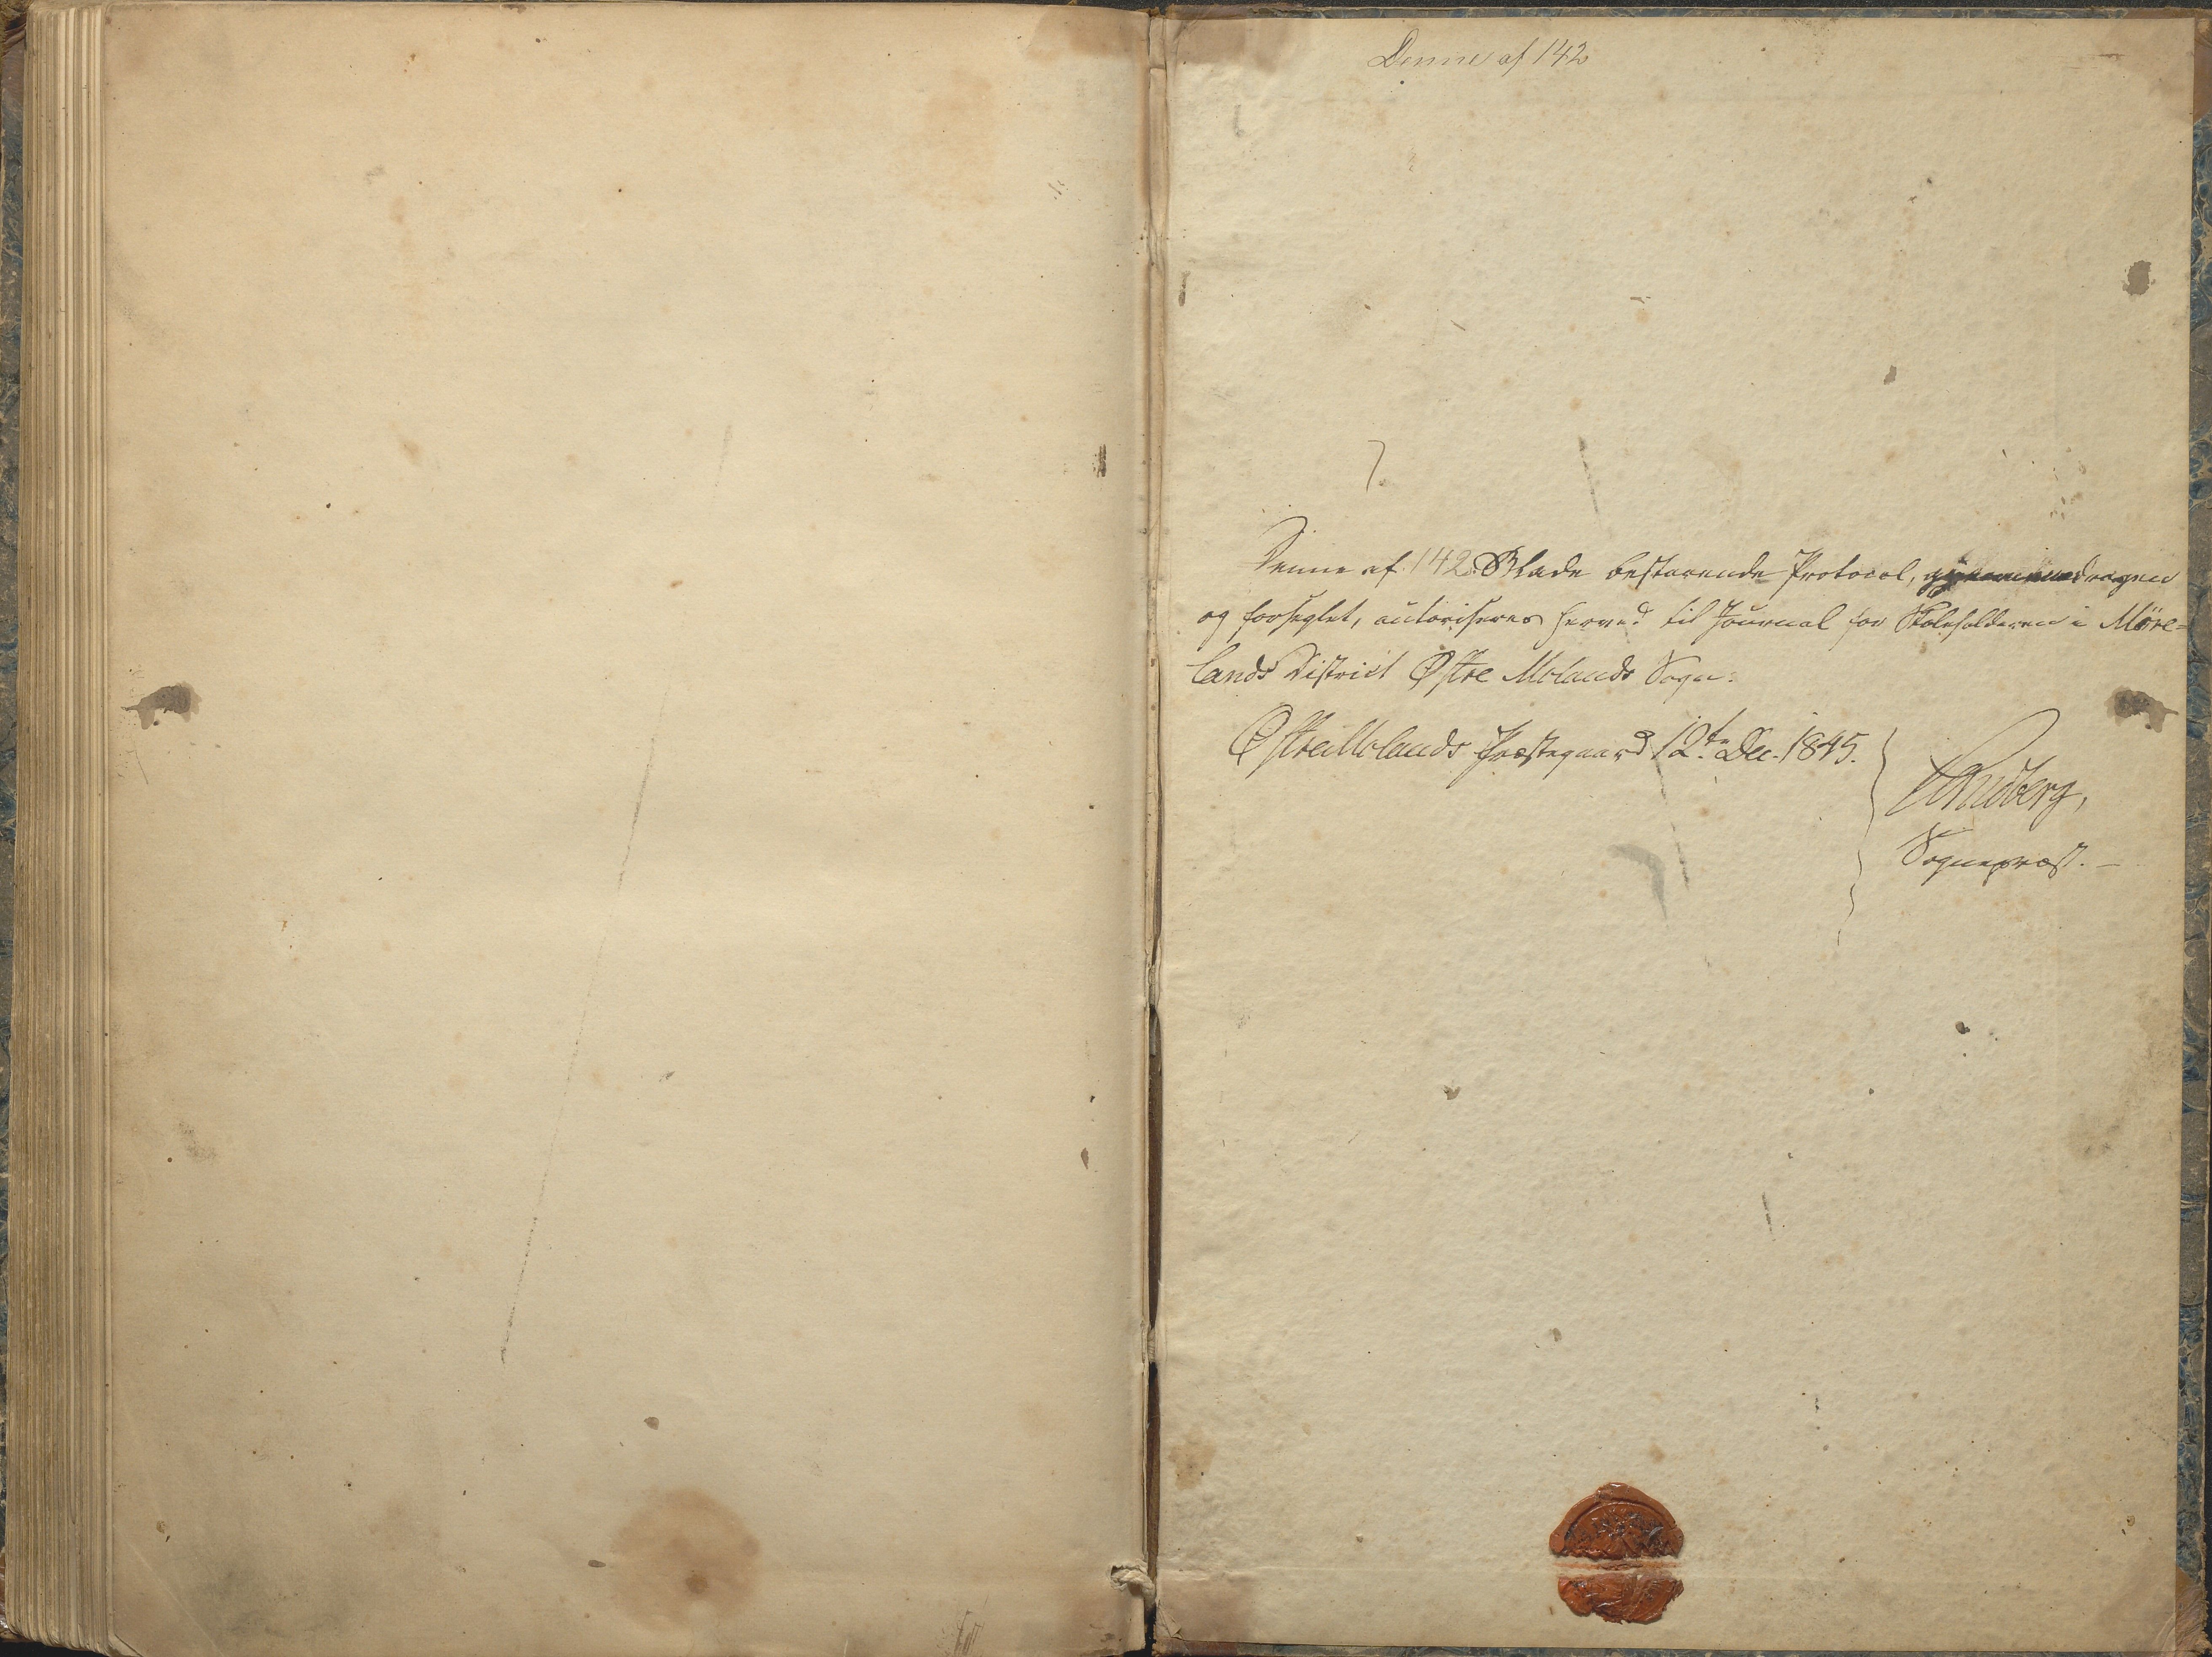 Denne af 142
Denne af 142 Blade bestaaende Protocol, gjennemdragen
og forseglet, autoriseres herved til Journal for Skoleholderen i Möre=
lands District Østre Molands Sogn.
Østre Molands Præstegaard 12te Dec. 1845.
Sogneprest. –